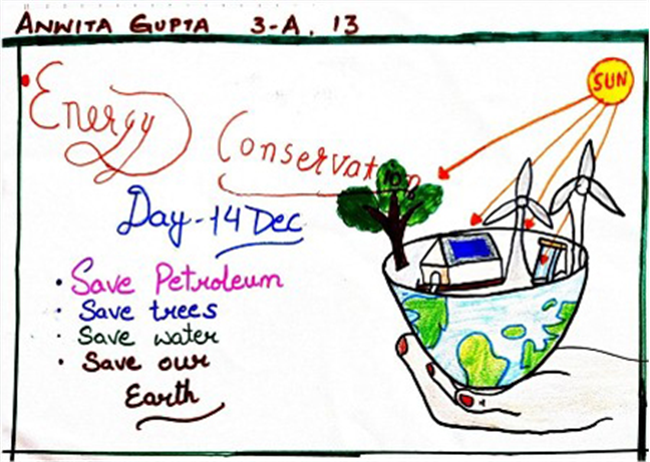 ANWITA GUPTA 3-A, 13
Energy
Conservation
Day-14 Dec
SUN
• Save Petroleum
• Save trees
• Save water
• Save our
Earth